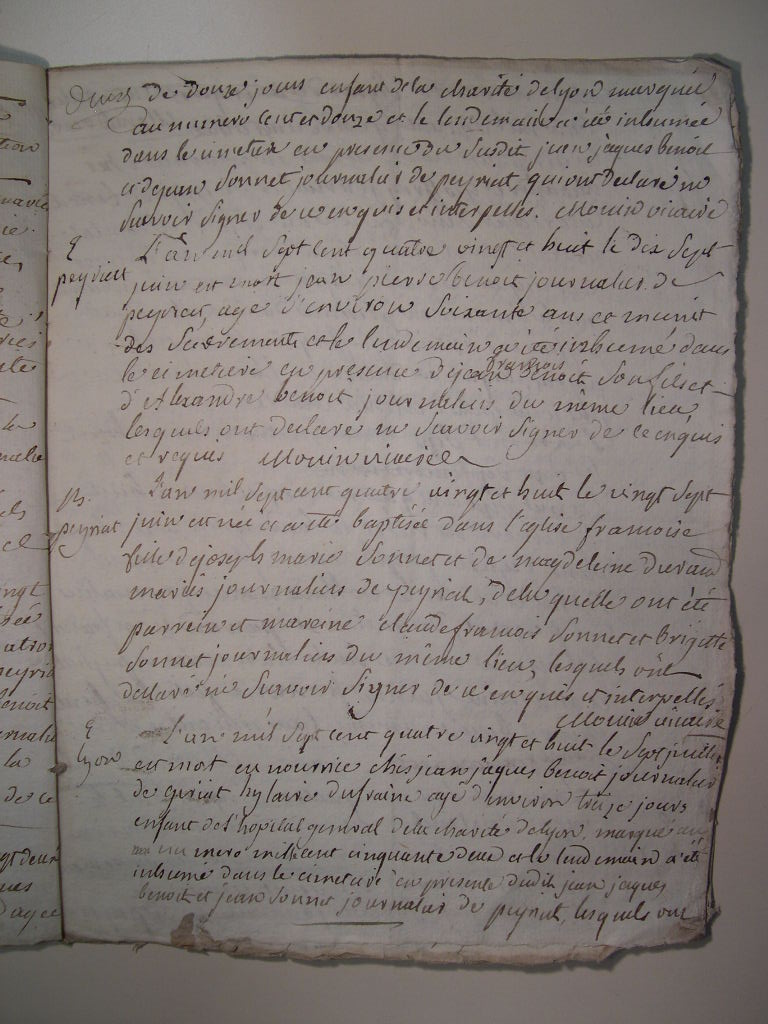 de douze jours enfant dela charité delyon marquée
au numero cent et douze et le lendemain a été inhumée
dans le cimetiere en presence du susdit jean jaques benoit
et dejean Sonnet journalier de peyriat, qui ont declaré ne
scavoir signer de ce enquis et interpellés. Mouin vicaire
L'an mil sept cent quatre vingt et huit le dix sept
peyriat juin est mort jean pierre benoit journalier de
peyriat, agé d'environ soixante ans et munit
des Sacrements et le lendemain a été inhumé dans
françois
le cimetiere en presence dejean benoit son fils et
d'Alexandre benoit journaliers du même lieu
lesquels ont declaré ne scavoir signer de ce enquis
et requis Mouin vicaire
L'an mil sept cent quatre vingt et huit le vingt sept
peyriat juin est née et a été baptisée dans l'église francoise
fille dejoseph marie Sonnet et de magdeleine durand
mariés journaliers de peyriat, de la quelle ont été
parrein et mareine claude francois Sonnet et brigitte
Sonnet journaliers du même lieu, lesquels ont
declaré ne scavoir signer de ce enquis et interpellés
Mouin vicaire
L'an mil sept cent quatre vingt et huit le sept juillet
lyon est mort en nourrice chés jean jaques benoit journalier
de hylaire dufraine agé d'environ treize jours
enfant de l'hopital general dela charité delyon, marqué au
numero mille cent cinquante deux et le lendemain a été
inhumé dans le cimetiere en presence dudit jean jaques
benoit et jean Sonnet journalier de peyriat, lesquels ont